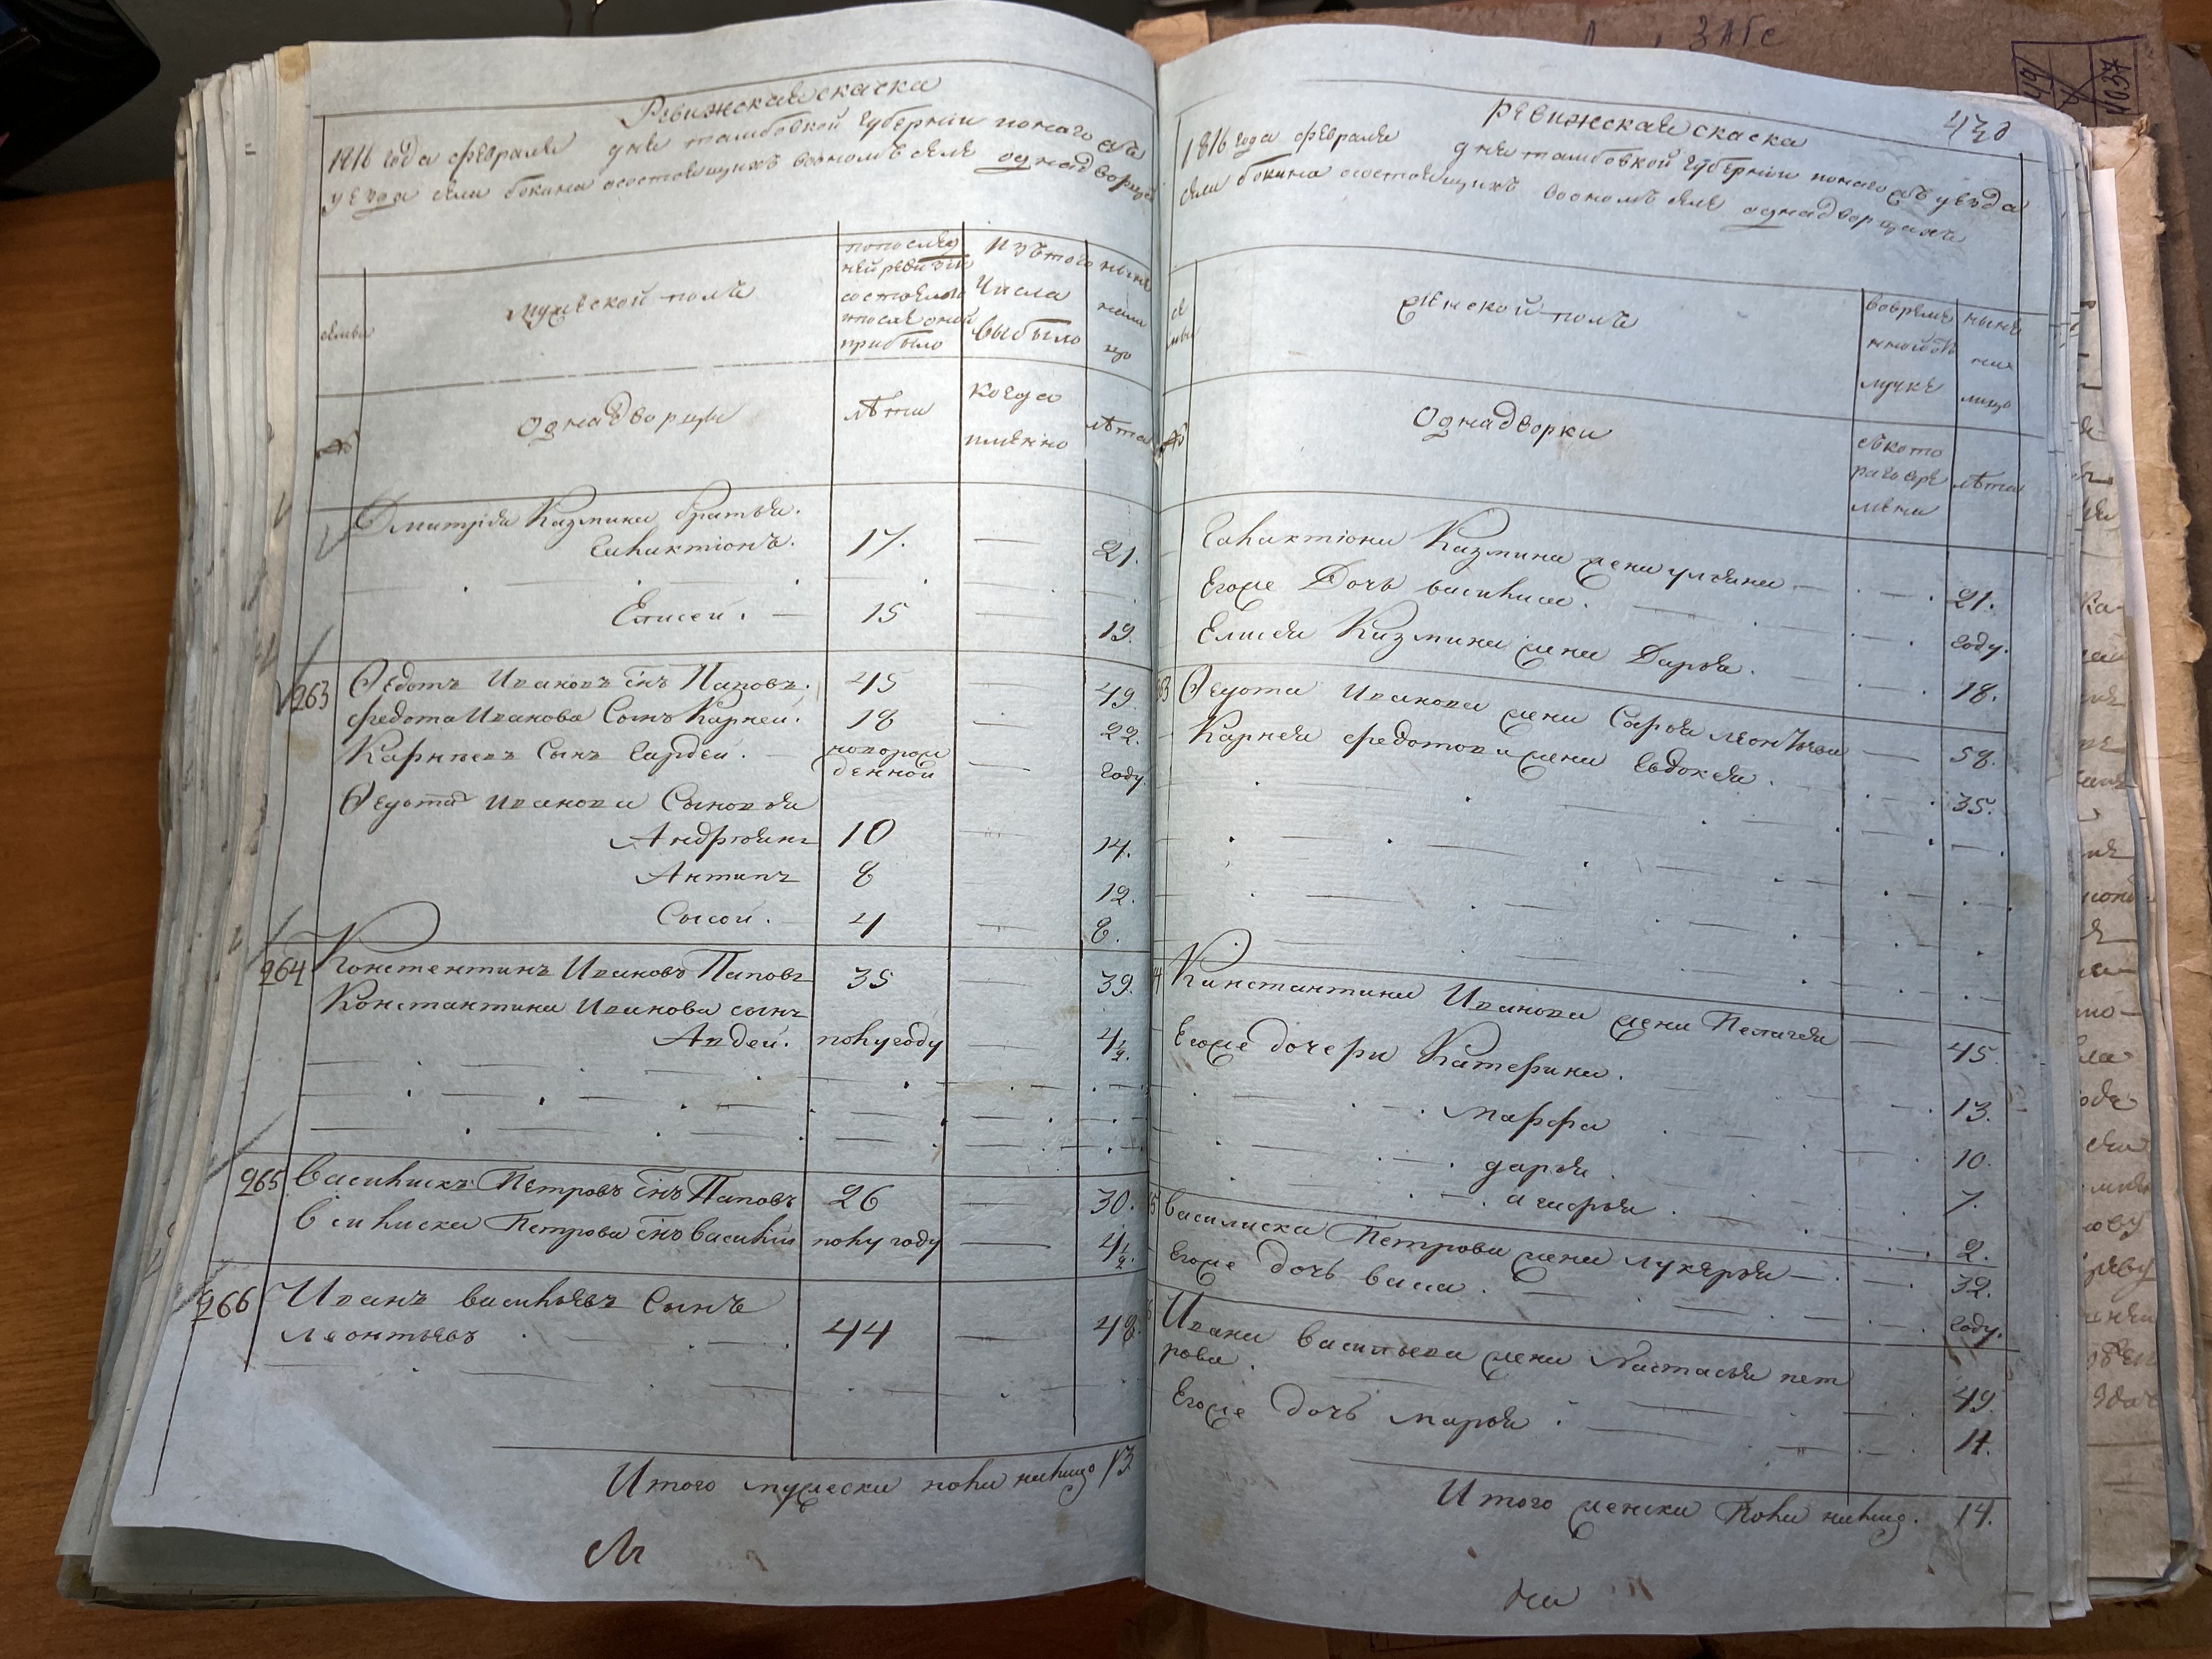 Ревижская скаска
1816 года февраля дня тамбовской губернии
уезда села бокина осостоящихъ воономъ селе однадворцах
мужеской полъ
попослед
ней ревизіи
состояло
и после оной
прибыло
изътого
числа
выбыло
ныне
нали
цо
Однадворцы
лѣта
когда
имянно
лѣта
Дмитрія Казмина братья.
Галактіонъ. 17. 21.
Елисей. 15 19.
263 Федотъ Ивановъ Сынъ Паповъ. 45 49.
федота Иванова Сынъ Карней. 18 22.
Карнеевъ Сынъ Гардей. новорож
денной году
Федота Иванова Сыновья
Андрюянъ 10 14.
Антипъ 8 12.
Сысой. 4 8.
264 Констентинъ Ивановъ Паповъ 35 39.
Константина Иванова сынъ
Авдей. полугоду 4½.
265 Василискъ Петровъ Снъ Паповъ 26 30.
Василиска Петрова Снъ Василій полу году 4½.
266 Иванъ васильевъ Сынъ
Леонтьевъ 44 48.
Итого мужеска пола налицо 13
Ревижская скаска
430
1816 года февраля дня тамбовской губернии уезда
села бокина осостоящихъ воономъ селе однадворцахъ
женской полъ
вовремя
нной от
лучке
ныне
на
лицо
Однадворки
съкото
раго вре
мени
лѣта
Галактіона Казмина жена ульяна 21.
Егоже Дочь василиса. году.
Елисея Казмина жена Дарья. 18.
Федота Иванова жена Софья леонтьева 58.
Карнея федотова жена Евдокея. 35.
Канстантина Иванова жена Пелагея 45.
Егоже дочери Катерина. 13.
марфа 10.
дарья 7.
агафья 2.
василиска Петрова жена лукерья 32.
Егоже дочь васа. году.
Ивана васильева жена Настасья пет
рова. 49.
Егоже дочь марья. 11.
Итого женска пола налицо. 14.
ЗАГС
1037